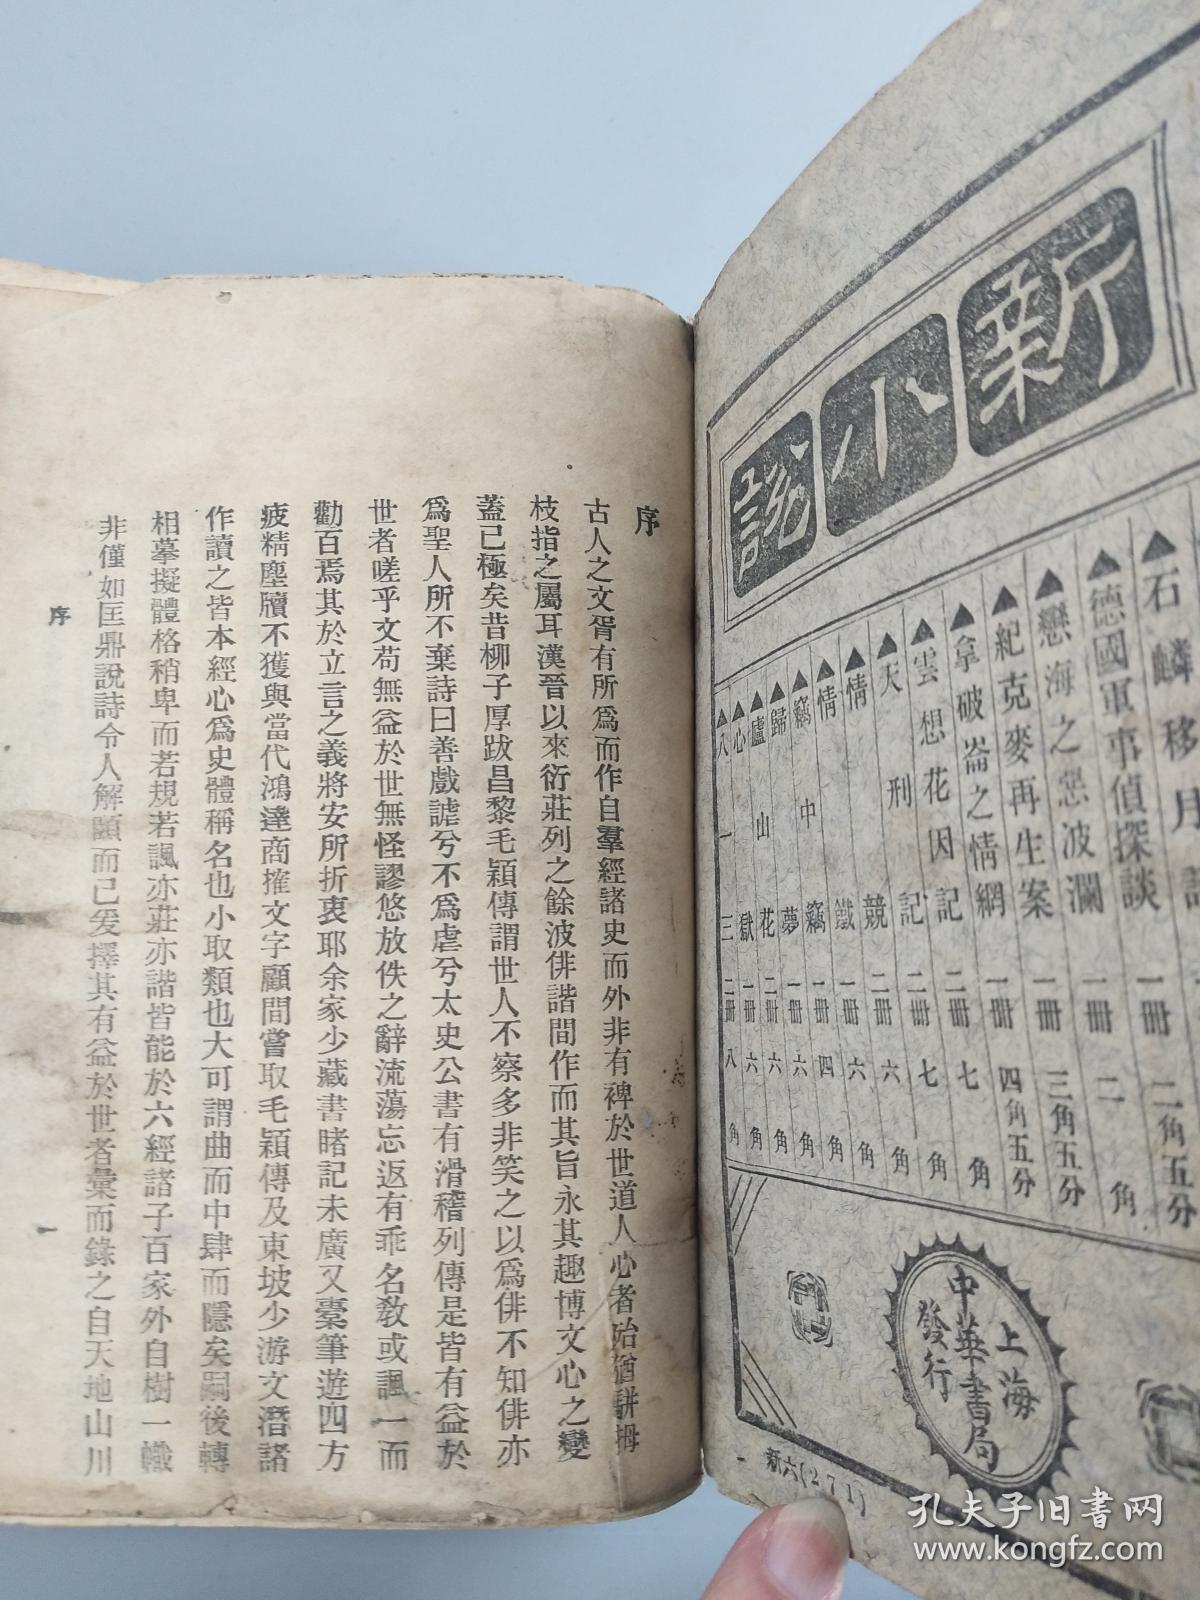 新小說
▲石麟移月記
▲德國軍事偵探談 一冊 二角五分
▲戀海之惡波瀾 一冊 二角
▲紀克麥再生案 一冊 三角五分
▲拿破崙之情網 一冊 四角五分
▲雲想花因記 二冊 七角
▲天刑記 二冊 七角
▲情競 二冊 六角
▲情鐵 一冊 六角
▲竊中竊 一冊 四角
▲歸夢 一冊 六角
▲廬山花 二冊 六角
▲心獄 一冊 六角
▲八一三 二冊 八角
上海
中華書局
發行
新六(271)
序
古人之文胥有所爲而作自羣經諸史而外非有裨於世道人心者殆猶駢拇
枝指之屬耳漢晉以來衍莊列之餘波俳諧間作而其旨永其趣博文心之變
蓋已極矣昔柳子厚跋昌黎毛穎傳謂世人不察多非笑之以爲俳不知俳亦
爲聖人所不棄詩曰善戲謔兮不爲虐兮太史公書有滑稽列傳是皆有益於
世者嗟乎文苟無益於世無怪謬悠放佚之辭流蕩忘返有乖名教或諷一而
勸百焉其於立言之義將安所折衷耶余家少藏書睹記未廣又橐筆遊四方
疲精塵牘不獲與當代鴻達商搉文字顧間嘗取毛穎傳及東坡少游文潛諸
作讀之皆本經心爲史體稱名也小取類也大可謂曲而中肆而隱矣嗣後轉
相摹擬體格稍卑而若規若諷亦莊亦諧皆能於六經諸子百家外自樹一幟
非僅如匡鼎說詩令人解頤而已爰擇其有益於世者彙而錄之自天地山川
序
一
孔夫子旧书网
www.kongfz.com